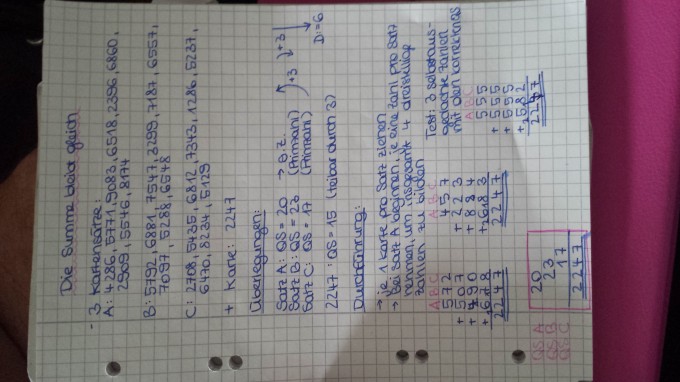 Die Summe bleibt gleich
- 3 Kartensätze:
A: 4286, 5771, 9083, 6518, 2396, 6860,
2909, 5546, 8174
B: 5792, 6881, 7547, 3299, 7187, 6557,
7097, 5288, 6548
C: 2708, 5435, 6812, 7343, 1286, 5237,
6470, 8234, 5129
+ Karte: 2247
Überlegungen:
Satz A: QS = 20 → g.Z.
Satz B: QS = 23 (Primzahl)
Satz C: QS = 17 (Primzahl)
+3
+3
D = 6
2247: QS = 15 (teilbar durch 3)
Durchführung:
→ je 1 Karte pro Satz ziehen
→ Bei Satz A beginnen, je eine Zahl pro Satz
nehmen, um insgesamt 4 dreistellige
Zahlen zu bilden
A B C
572
+ 507
+ 490
+ 678
2247
A B C
457
+ 223
+ 884
+ 683
2247
Test: 3 selbstaus-
gedachte Zahlen
mit den korrekten QS
A B C
555
+ 555
+ 555
+ 582
2247
QS A 20
QS B 23
QS C 17
2247